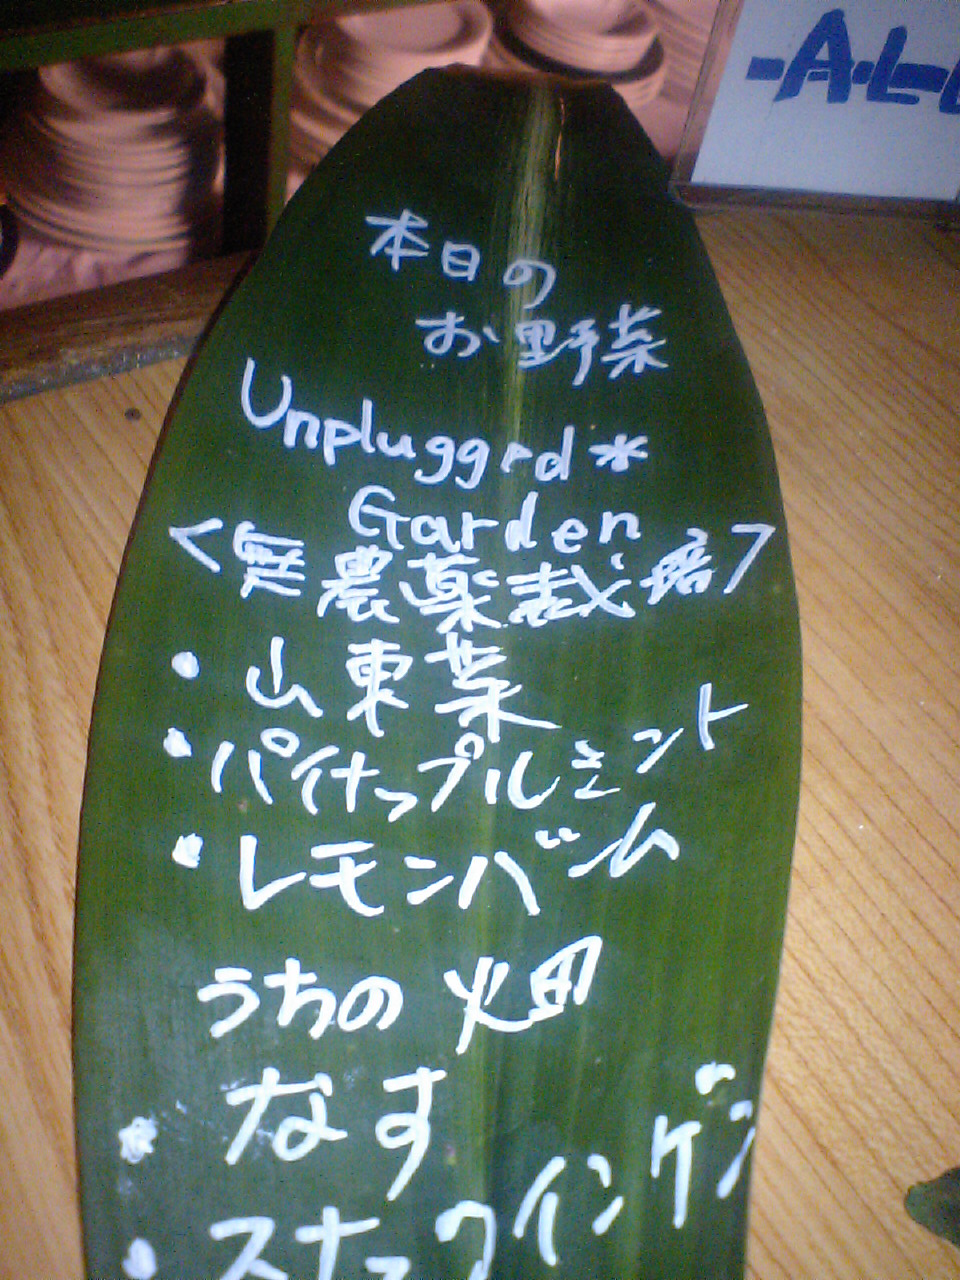 -AL
本日の
お野菜
Unpluggrd*
Garden
<無農薬栽培>
・山東菜
・パイナップルミント
・レモンバーム
うちの畑
・なす
・スナックインゲン